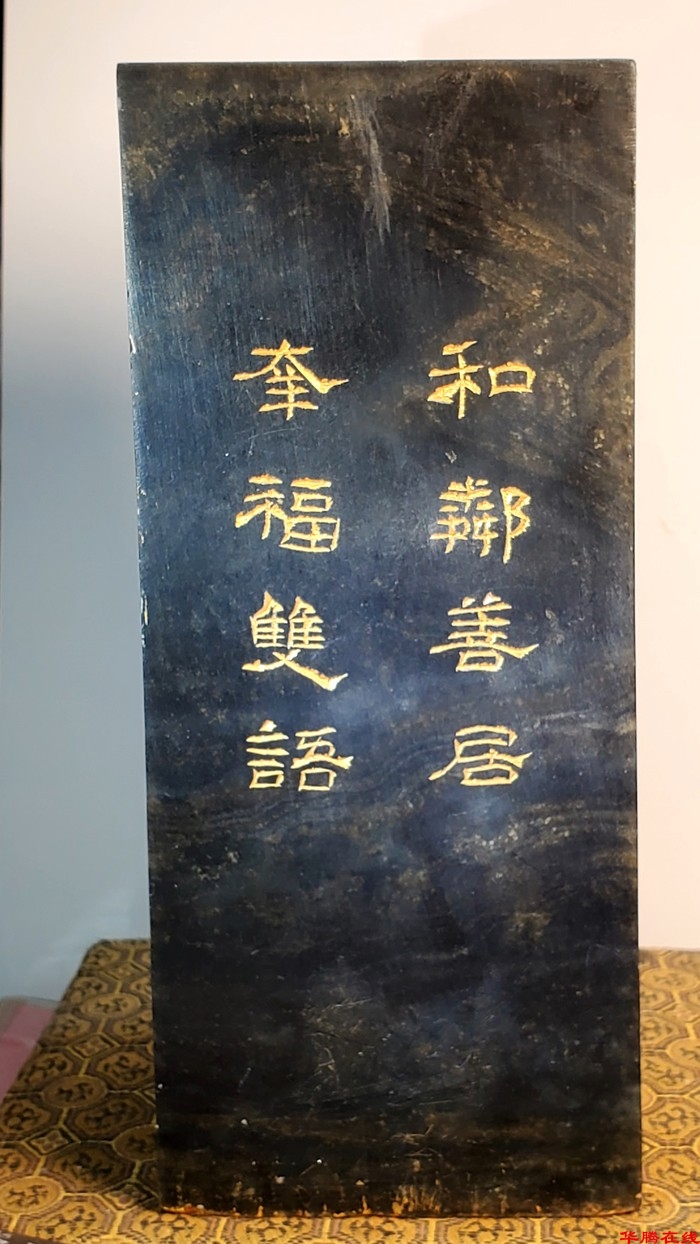 和鄰善居
奎福雙語
华腾在线